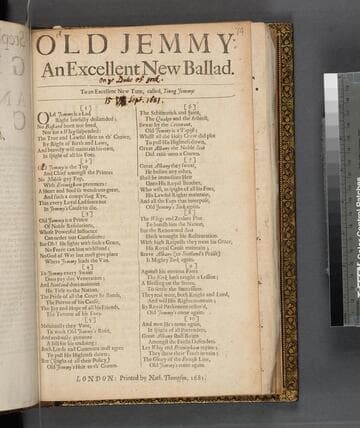 OLD JEMMY:
An Excellent New Ballad.
on ye Duke of york.
To an Excellent New Tune, called, Young Jemmy.
15 Sept. 1681.
[1]
OLd Jemmy is a Lad
Right lawfully descended;
No Bastard born nor bred,
Nor for a Whig suspended:
The True and Lawful Heir to th' Crown,
By Right of Birth and Laws,
And bravely will maintain his own,
In spight of all his Foes.
[2]
Old Jemmy is the Top
And Chief amongst the Princes;
No Mobile gay Fop,
With Birmingham pretences:
A Heart and Soul so wondrous great,
And such a conquering Eye,
That every Loyal Lad
In Jemmy's Cause to die.
[3]
Old Jemmy is a Prince
Of Noble Resolutions,
Whose Powerful Influence
Can order our Confusions;
But Oh! He fights with such a Grace,
No Force can him withstand;
No God of War but must give place
Where Jemmy leads the Van.
[4]
To Jemmy every Swain
Does pay due Veneration;
And Scotland does maintain
His Title to the Nation.
The Pride of all the Court he stands,
The Patron of his Cause,
The Joy and Hope of all his Friends,
The Terrour of his Foes.
[5]
Maliciously they Vote,
To work Old Jemmy's Ruin,
And zealously promote
A Bill for his undoing;
Both Lords and Commons most agree
To pull His Highness down;
But (spight of all their Policy)
Old Jemmy's Heir to th' Crown.
[6]
The Schismatick and Saint,
The Quaker and the Atheist,
Swear by the Covenant,
Old Jemmy is a Papist:
Whilst all the Holy Crew did plot
To pull His Highness down,
Great Albany the Noble Scot
Did raise unto a Crown.
[7]
Great Albany they swear,
He before any other,
Shall be immediate Heir
Unto His Royal Brother,
Who will, in spight of all his Foes,
His Lawful Rights maintain;
And all the Fops that interpose,
Old Jemmy's York again.
[8]
The Whigs and Zealots Plot
To banish him the Nation,
But the Renowned Scot
Hath wrought his Restauration:
With high Respects they treat his Grace,
His Royal Cause maintain;
Brave Albany (to Scotland's Praise)
Is Mighty York again.
[9]
Against his envious Foes
The Kirk hath taught a Lesson;
A Blessing on the
To settle the Succession:
They real were, both Knight and Lord,
And will His Rights maintain;
By Royal Parliament restor'd,
Old Jemmy's come again.
[10]
And now He's come again,
In spight of all Pretenders;
Great Albany shall Reign
Amongst the Faith's Defenders.
Let Whig and Birmingham repine,
They shew their Teeth in vain;
The Glory of the British Line,
Old Jemmy's come again.
LONDON: Printed by Nath. Thompson, 1681.